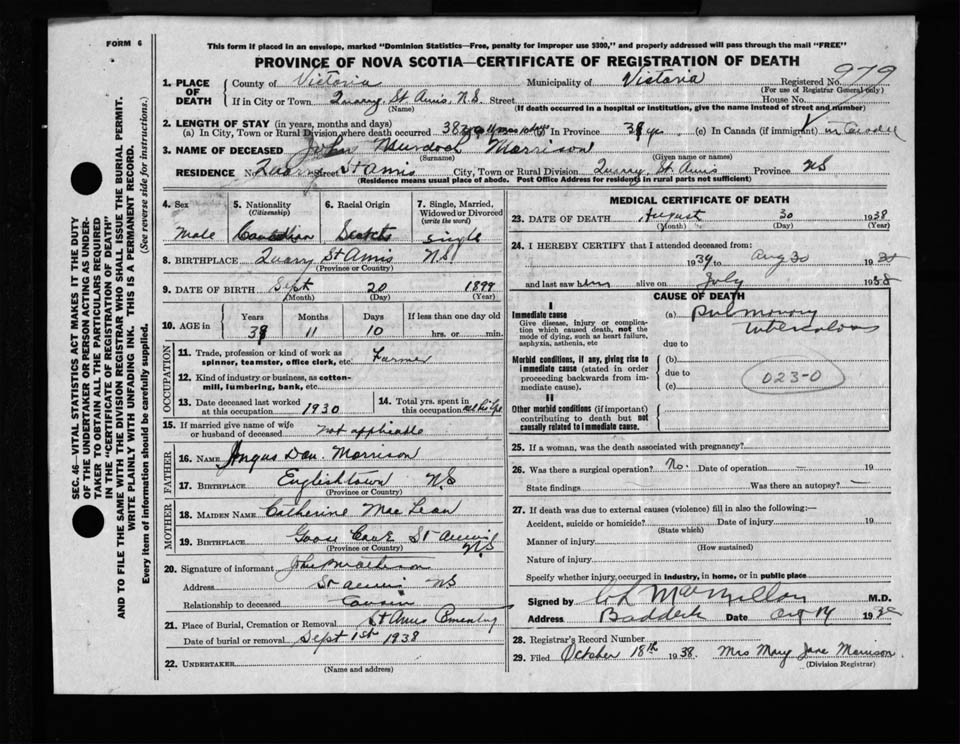 FORM 6
This form if placed in an envelope, marked "Dominion Statistics—Free, penalty for improper use $300," and properly addressed will pass through the mail "FREE"
PROVINCE OF NOVA SCOTIA—CERTIFICATE OF REGISTRATION OF DEATH
SEC. 46—VITAL STATISTICS ACT MAKES IT THE DUTY
OF THE UNDERTAKER OR PERSON ACTING AS UNDER-
TAKER TO OBTAIN ALL THE PARTICULARS REQUIRED
IN THE "CERTIFICATE OF REGISTRATION OF DEATH"
AND TO FILE THE SAME WITH THE DIVISION REGISTRAR WHO SHALL ISSUE THE BURIAL PERMIT.
WRITE PLAINLY WITH UNFADING INK. THIS IS A PERMANENT RECORD.
Every item of information should be carefully supplied. (See reverse side for instructions.)
1. PLACE OF DEATH County of Victoria Municipality of Victoria Registered No. 979
(For use of Registrar General only)
If in City or Town Quarry St Anns N.S. Street House No.
(Name) (If death occurred in a hospital or institution, give the name instead of street and number)
2. LENGTH OF STAY (in years, months and days)
(a) In City, Town or Rural Division where death occurred 38 yrs 11 mos In Province 39 yrs (c) In Canada (if immigrant) in Canada
3. NAME OF DECEASED John Murdoch Morrison
(Surname) (Given name or names)
RESIDENCE No. Quarry Street St Anns City, Town or Rural Division Quarry St. Anns Province NS
(Residence means usual place of abode. Post Office Address for residents in rural parts not sufficient)
4. Sex 5. Nationality (Citizenship) 6. Racial Origin 7. Single, Married, Widowed or Divorced (write the word)
Male Canadian Scotch Single
8. BIRTHPLACE Quarry St Anns NS
(Province or Country)
9. DATE OF BIRTH Sept 20 1899
(Month) (Day) (Year)
10. AGE in Years Months Days If less than one day old
39 11 10 hrs. or min.
OCCUPATION
11. Trade, profession or kind of work as
spinner, teamster, office clerk, etc. Farmer
12. Kind of industry or business, as cotton-
mill, lumbering, bank, etc.
13. Date deceased last worked
at this occupation 1930
14. Total yrs. spent in
this occupation all his life
15. If married give name of wife
or husband of deceased not applicable
FATHER
16. NAME Angus Dan Morrison
17. BIRTHPLACE Englishtown N.S
(Province or Country)
MOTHER
18. MAIDEN NAME Catherine MacLean
19. BIRTHPLACE Goose Cove St Anns NS
(Province or Country)
20. Signature of informant John
Address St Anns NS
Relationship to deceased Cousin
21. Place of Burial, Cremation or Removal St Anns Cemetery
Date of burial or removal Sept 1st 1938
22. UNDERTAKER
(Name and address)
MEDICAL CERTIFICATE OF DEATH
23. DATE OF DEATH August 30 1938
(Month) (Day) (Year)
24. I HEREBY CERTIFY that I attended deceased from:
1934 to Aug 30 19
and last saw him alive on July 1938
CAUSE OF DEATH
I
Immediate cause
Give disease, injury or complica-
tion which caused death, not the
mode of dying, such as heart failure,
asphyxia, asthenia, etc
(a) Pulmonary
Tuberculosis
due to
Morbid conditions, if any, giving rise to
immediate cause (stated in order
proceeding backwards from im-
mediate cause).
(b)
due to
(c)
023-0
II
Other morbid conditions (if important)
contributing to death but not
causally related to immediate cause.
25. If a woman, was the death associated with pregnancy?
26. Was there a surgical operation? No. Date of operation — 19
State findings Was there an autopsy? —
27. If death was due to external causes (violence) fill in also the following:
Accident, suicide or homicide? Date of injury 19
(State which)
Manner of injury
(How sustained)
Nature of injury
Specify whether injury occurred in industry, in home, or in public place
Signed by C L MacMillan M.D.
Address Baddeck Date Oct 14 1938
28. Registrar's Record Number
29. Filed October 18th 1938. Mrs Mary Jane Morrison
(Division Registrar)